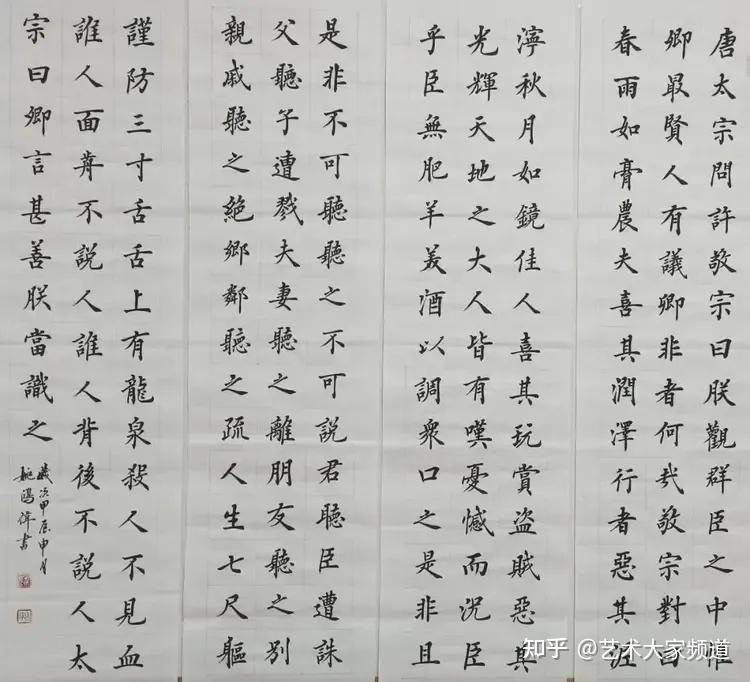 唐太宗問許敬宗曰朕觀群臣之中惟
卿最賢人有議卿非者何哉敬宗對曰
春雨如膏農夫喜其潤澤行者惡其泥
濘秋月如鏡佳人喜其玩賞盜賊惡其
光輝天地之大人皆有嘆憂憾而況臣
乎臣無肥羊美酒以調衆口之是非且
是非不可聽聽之不可説君聽臣遭誅
父聽子遭戮夫妻聽之離朋友聽之別
親戚聽之絕鄉鄰聽之疏人生七尺軀
謹防三寸舌舌上有龍泉殺人不見血
誰人面前不説人誰人背後不説人太
宗曰卿言甚善朕當識之
歲次甲辰申月
姚鷗偉書
知乎 @艺术大家频道